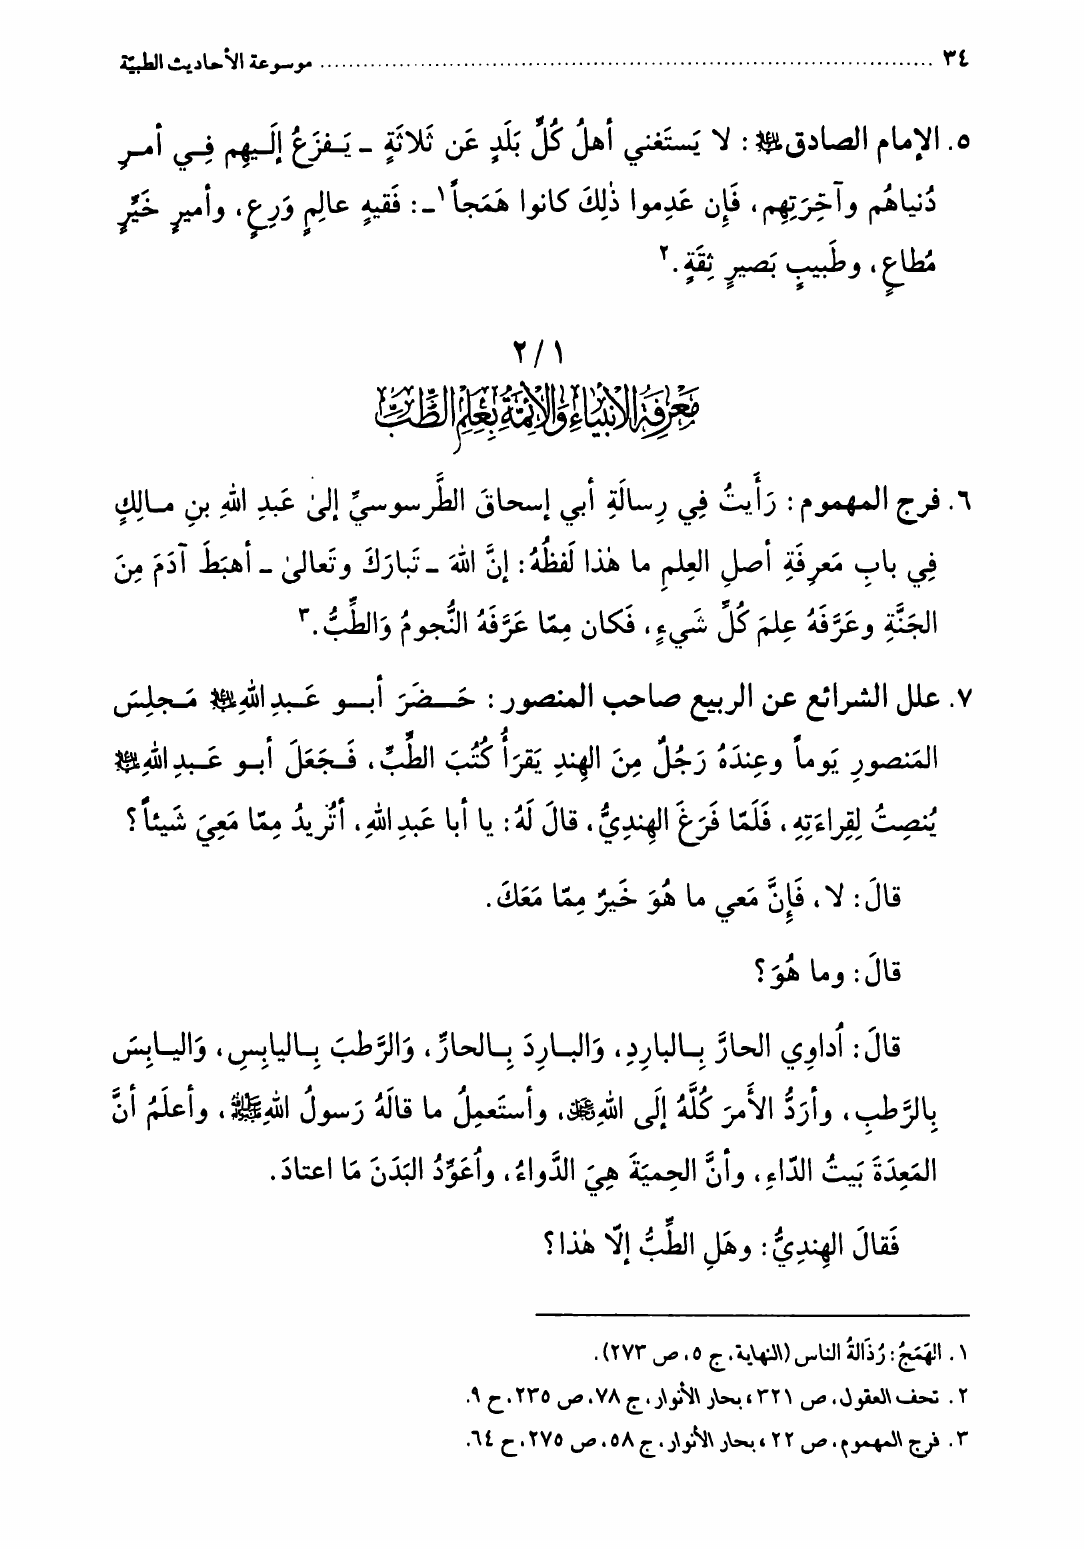 ٣٤ ........ موسوعة الأحاديث الطبيّة
٥. الإمام الصادق ﷺ: لا يَستَغني أهلُ كُلِّ بَلَدٍ عَن ثَلاثَةٍ ـ يَـفزَعُ إلَـيهِم فِـي أمـرِ
دُنياهُم وآخِرَتِهِم، فَإِن عَدِموا ذٰلِكَ كانوا هَمَجاً١ـ: فَقيهٍ عالِمٍ وَرِعٍ، وأميرٍ خَيِّرٍ
مُطاعٍ، وطَبيبٍ بَصيرٍ ثِقَةٍ.٢
٢/١
مَعْرِفَةُ الأَنْبِيَاءِ وَالأَئِمَّةِ بِعِلْمِ الطِّبِّ
٦. فرج المهموم: رَأَيتُ فِي رِسالَةِ أبي إسحاقَ الطَّرسوسيِّ إلىٰ عَبدِ اللهِ بنِ مـالِكٍ
فِي بابِ مَعرِفَةِ أصلِ العِلمِ ما هٰذا لَفظُهُ: إنَّ اللهَ ـ تَبارَكَ وتَعالىٰ ـ أهبَطَ آدَمَ مِنَ
الجَنَّةِ وعَرَّفَهُ عِلمَ كُلِّ شَيءٍ، فَكان مِمّا عَرَّفَهُ النُّجومُ وَالطِّبُّ.٣
٧. علل الشرائع عن الربيع صاحب المنصور: حَـضَرَ أبـو عَـبدِ اللهِ ﷺ مَـجلِسَ
المَنصورِ يَوماً وعِندَهُ رَجُلٌ مِنَ الهِندِ يَقرَأُ كُتُبَ الطِّبِّ، فَـجَعَلَ أبـو عَـبدِ اللهِ ﷺ
يُنصِتُ لِقِراءَتِهِ، فَلَمّا فَرَغَ الهِندِيُّ، قالَ لَهُ: يا أبا عَبدِ اللهِ، أتُريدُ مِمّا مَعِيَ شَيئاً؟
قالَ: لا، فَإِنَّ مَعي ما هُوَ خَيرٌ مِمّا مَعَكَ.
قالَ: وما هُوَ؟
قالَ: اُداوِي الحارَّ بِـالبارِدِ، وَالبـارِدَ بِـالحارِّ، وَالرَّطبَ بِـاليابِسِ، وَاليـابِسَ
بِالرَّطبِ، وأرَدُّ الأَمرَ كُلَّهُ إلَى اللهِ ﷻ، وأستَعمِلُ ما قالَهُ رَسولُ اللهِ ﷺ، وأعلَمُ أنَّ
المَعِدَةَ بَيتُ الدّاءِ، وأنَّ الحِميَةَ هِيَ الدَّواءُ، واُعَوِّدُ البَدَنَ مَا اعتادَ.
فَقالَ الهِندِيُّ: وهَلِ الطِّبُّ إلّا هٰذا؟
١. الهَمَجُ: رُذَالةُ الناس (النهاية، ج ٥، ص ٢٧٣).
٢. تحف العقول، ص ٣٢١؛ بحار الأنوار، ج ٧٨، ص ٢٣٥، ح ٩.
٣. فرج المهموم، ص ٢٢؛ بحار الأنوار، ج ٥٨، ص ٢٧٥، ح ٦٤.